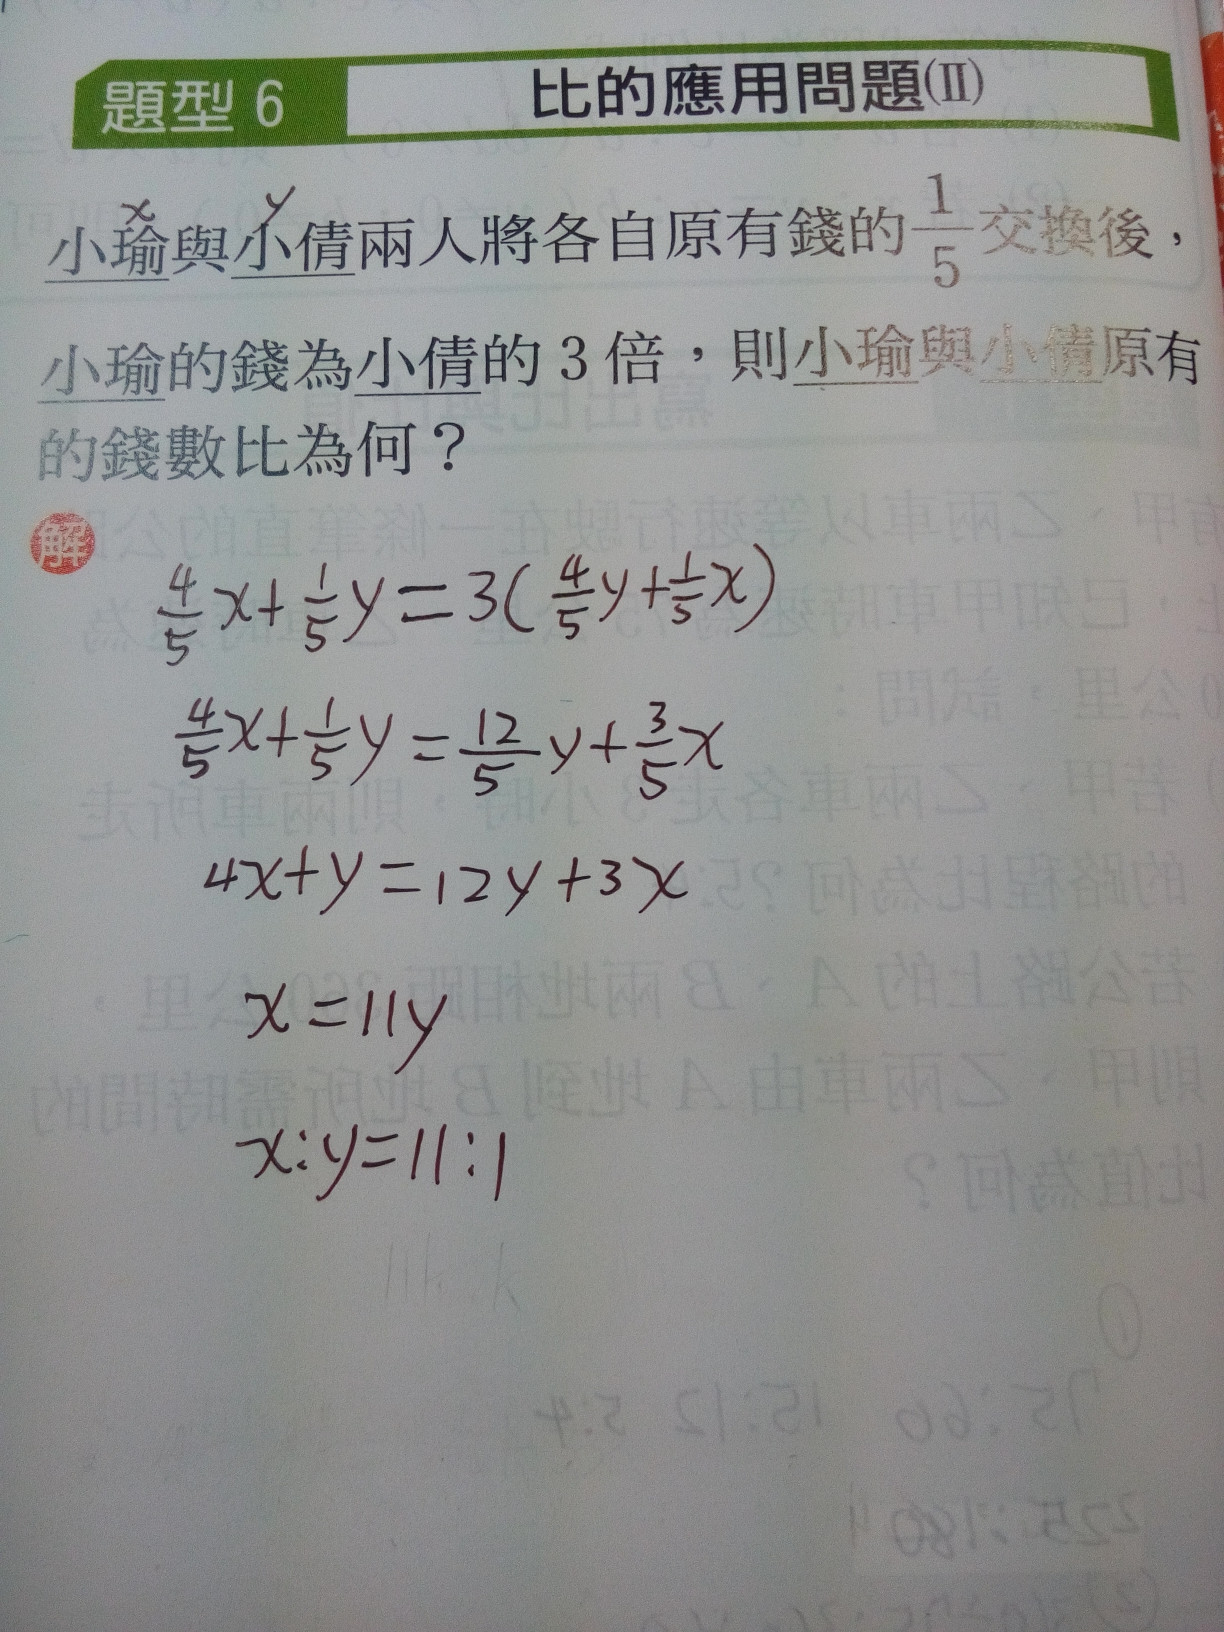 題型 6 比的應用問題(II)
x y
小瑜與小倩兩人將各自原有錢的 1/5 交換後，
小瑜的錢為小倩的 3 倍，則小瑜與小倩原有
的錢數比為何？
解
4/5 x + 1/5 y = 3( 4/5 y + 1/5 x )
4/5 x + 1/5 y = 12/5 y + 3/5 x
4x + y = 12y + 3x
x = 11y
x : y = 11 : 1